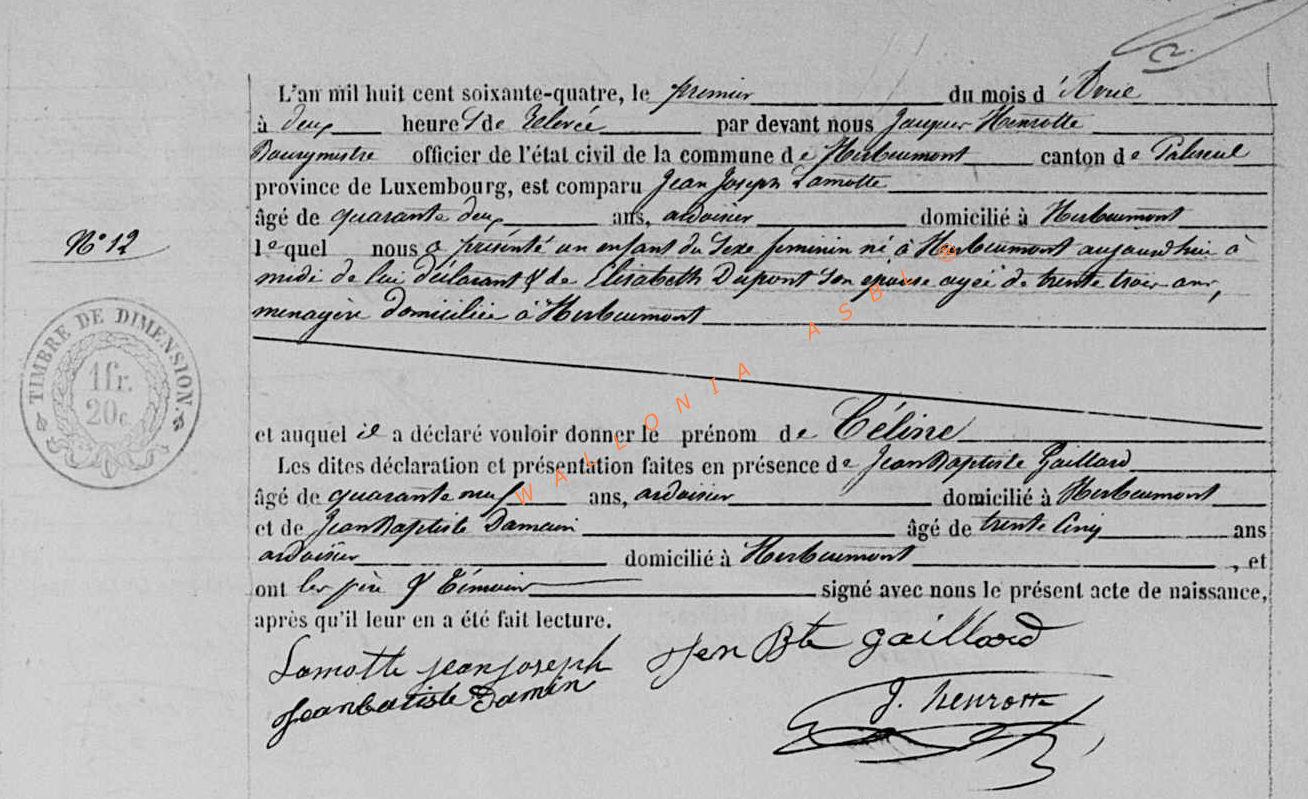 L'an mil huit cent soixante-quatre, le premier du mois d'Avril
à deux heures de relevée par devant nous Jacques Henrotte
Bourgmestre officier de l'état civil de la commune de Herbeumont canton de Paliseul
province de Luxembourg, est comparu Jean Joseph Lamotte
âgé de quarante deux ans, ardoisier domicilié à Herbeumont
N° 12
lequel nous a présenté un enfant du sexe feminin né à Herbeumont aujourd'hui à
midi de lui déclarant & de Elisabeth Dupont son épouse agée de trente trois ans,
menagère domiciliée à Herbeumont
TIMBRE DE DIMENSION.
1 fr.
20c
WALLONIA ASBL ®
et auquel il a déclaré vouloir donner le prénom de Céline
Les dites déclaration et présentation faites en présence de Jean Baptiste Gaillard
âgé de quarante neuf ans, ardoisier domicilié à Herbeumont
et de Jean Baptiste Damain âgé de trente cinq ans
ardoisier domicilié à Herbeumont, et
ont les père & témoins signé avec nous le présent acte de naissance,
après qu'il leur en a été fait lecture.
Lamotte jean joseph Jen Bte gaillard
Jean batiste Damin
J. henrotte